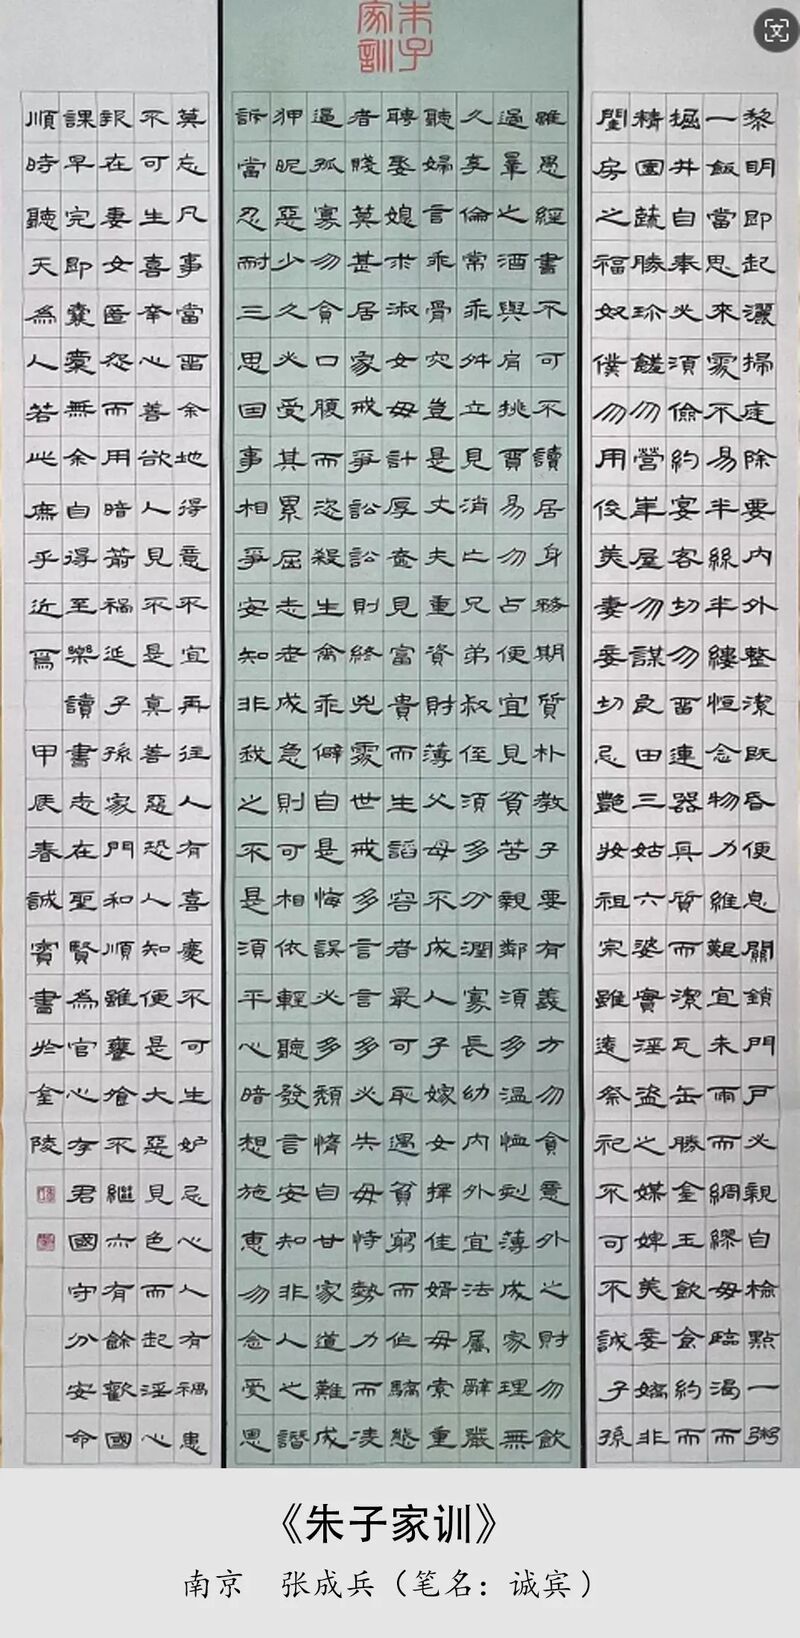 朱子
家訓
黎明即起灑掃庭除要內外整潔既昏便息關鎖門戶必親自檢點一粥
一飯當思來處不易半絲半縷恒念物力維艱宜未雨而綢繆毋臨渴而
掘井自奉必須儉約宴客切勿留連器具質而潔瓦缶勝金玉飲食約而
精園蔬勝珍饈勿營華屋勿謀良田三姑六婆實淫盜之媒婢美妾嬌非
閨房之福奴僕勿用俊美妻妾切忌艷妝祖宗雖遠祭祀不可不誠子孫
雖愚經書不可不讀居身務期質朴教子要有義方勿貪意外之財勿飲
過量之酒與肩挑貿易勿占便宜見貧苦親鄰須多溫恤刻薄成家理無
久享倫常乖舛立見消亡兄弟叔侄須多分潤寡長幼內外宜法屬辭嚴
聽婦言乖骨肉豈是丈夫重資財薄父母不成人子嫁女擇佳婿毋索重
聘娶媳求淑女毋計厚奩見富貴而生諂容者最可恥遇貧窮而作驕態
者賤莫甚居家戒爭訟訟則終兇處世戒多言言多必失毋恃勢力而凌
逼孤寡勿貪口腹而恣殺生禽乖僻自是悔誤必多頹惰自甘家道難成
狎昵惡少久必受其累屈志老成急則可相依輕聽發言安知非人之譖
訴當忍耐三思因事相爭安知非我之不是須平心暗想施惠勿念受恩
莫忘凡事當留余地得意不宜再往人有喜慶不可生妒忌心人有禍患
不可生喜幸心善欲人見不是真善惡恐人知便是大惡見色而起淫心
報在妻女匿怨而用暗箭禍延子孫家門和順雖饔飧不繼亦有餘歡國
課早完即囊橐無余自得至樂讀書志在聖賢為官心存君國守分安命
順時聽天為人若此庶乎近焉 甲辰春誠賓書於金陵
《朱子家训》
南京 张成兵(笔名:诚宾)